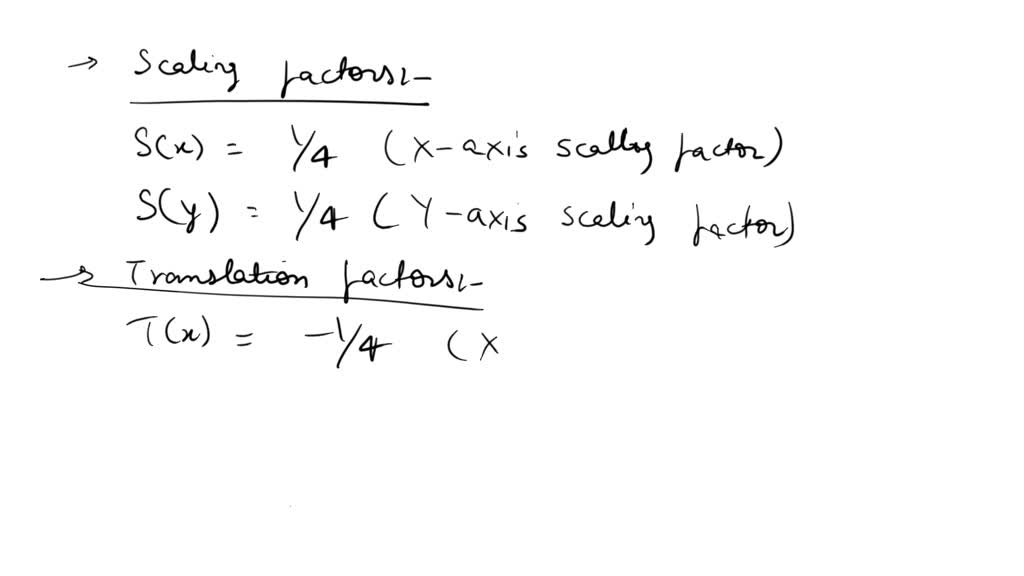 → Scaling factors:-
S(x) = 1/4 (X-axis scaling factor)
S(y) = 1/4 (Y-axis scaling factor)
→ Translation factors:-
T(x) = -1/4 (X